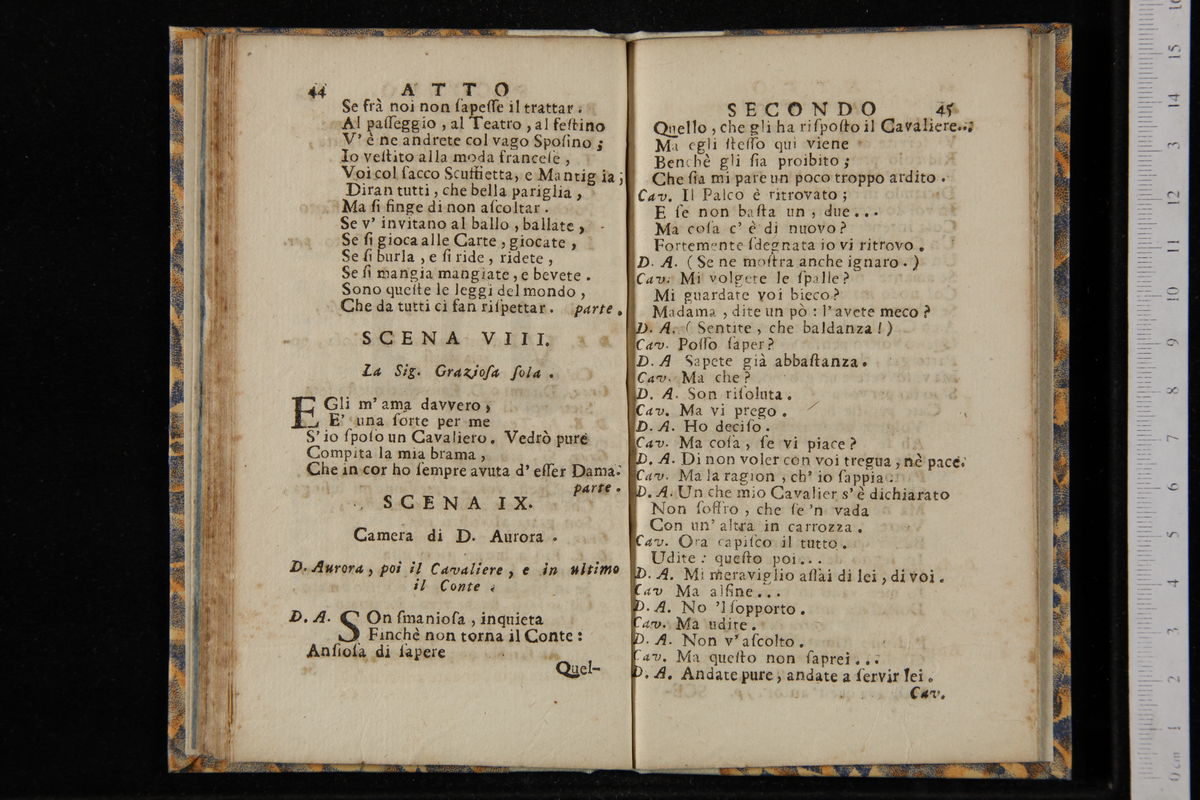 44 ATTO
Se frà noi non ſapeſſe il trattar.
Al paſſeggio, al Teatro, al feſtino
V' è ne andrete col vago Spoſino;
Io veſtito alla moda franceſe,
Voi col ſacco Scuffietta, e Mantiglia;
Diran tutti, che bella pariglia,
Ma ſi finge di non aſcoltar.
Se v' invitano al ballo, ballate,
Se ſi gioca alle Carte, giocate,
Se ſi burla, e ſi ride, ridete,
Se ſi mangia mangiate, e bevete.
Sono queſte le leggi del mondo,
Che da tutti ci fan riſpettar. parte.
SCENA VIII.
La Sig. Grazioſa ſola.
EGli m' ama davvero,
E' una ſorte per me
S' io ſpoſo un Cavaliero. Vedrò pure
Compita la mia brama,
Che in cor ho ſempre avuta d' eſſer Dama.
parte.
SCENA IX.
Camera di D. Aurora.
D. Aurora, poi il Cavaliere, e in ultimo
il Conte.
D. A. SOn ſmanioſa, inquieta
Finchè non torna il Conte:
Anſioſa di ſapere
Quel-
SECONDO 45
Quello, che gli ha riſpoſto il Cavaliere...
Ma egli ſteſſo qui viene
Benchè gli ſia proibito;
Che ſia mi pare un poco troppo ardito.
Cav. Il Palco è ritrovato;
E ſe non baſta un, due...
Ma coſa c' è di nuovo?
Fortemente ſdegnata io vi ritrovo.
D. A. (Se ne moſtra anche ignaro.)
Cav. Mi volgete le ſpalle?
Mi guardate voi bieco?
Madama, dite un pò: l' avete meco?
D. A. (Sentite, che baldanza!)
Cav. Poſſo ſaper?
D. A Sapete già abbaſtanza.
Cav. Ma che?
D. A. Son riſoluta.
Cav. Ma vi prego.
D. A. Ho deciſo.
Cav. Ma coſa, ſe vi piace?
D. A. Di non voler con voi tregua, nè pace.
Cav. Ma la ragion, ch' io ſappia.
D. A. Un che mio Cavalier s' è dichiarato
Non ſoffro, che ſe 'n vada
Con un' altra in carrozza.
Cav. Ora capiſco il tutto.
Udite: queſto poi...
D. A. Mi meraviglio aſſai di lei, di voi.
Cav Ma alfine...
D. A. No 'l ſopporto.
Cav. Ma udite.
D. A. Non v' aſcolto.
Cav. Ma queſto non ſaprei...
D. A. Andate pure, andate a ſervir lei.
Cav.